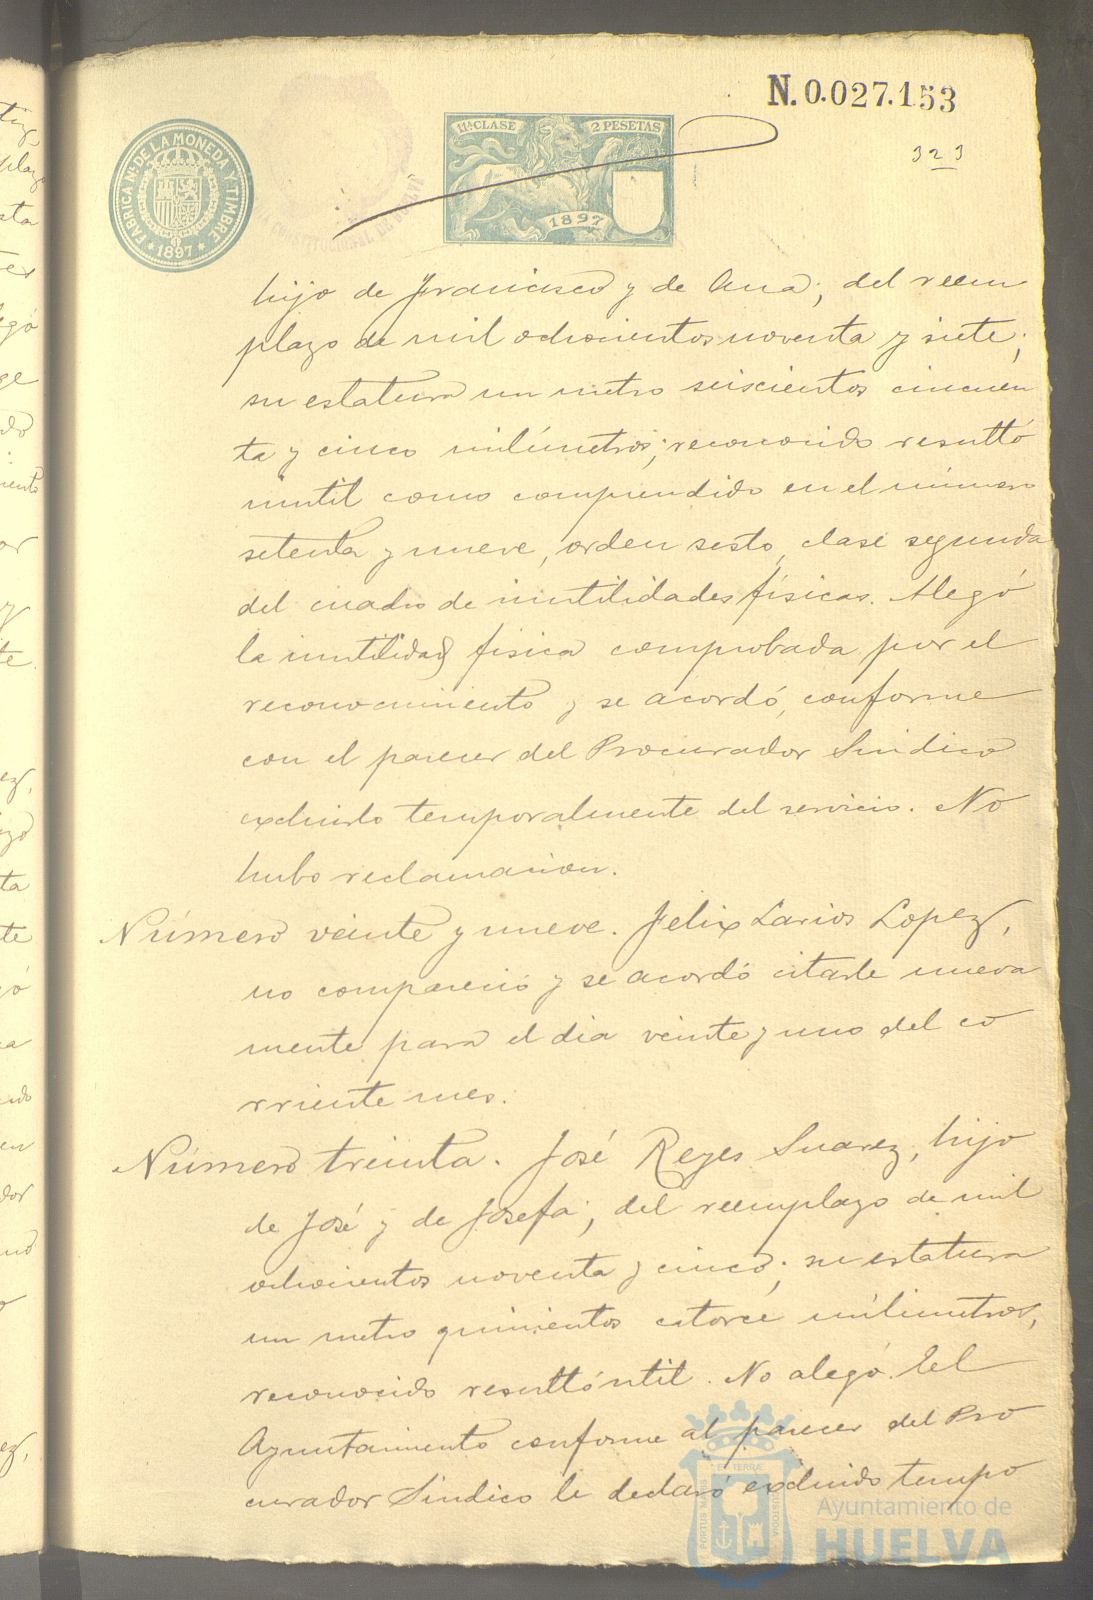 N. 0.027.153
323
11ª CLASE 2 PESETAS
1897
FÁBRICA Nal DE LA MONEDA Y TIMBRE
* 1897 *
CONSTITUCIONAL DE HUELVA
hijo de Francisco y de Ana; del reem
plazo de mil ochocientos noventa y siete;
su estatura un metro seiscientos cincuen
ta y cinco milímetros; reconocido resultó
inutil como comprendido en el número
setenta y nueve, orden sesto, clase segunda
del cuadro de inutilidades físicas. Alegó
la inutilidad física comprobada por el
reconocimiento y se acordó, conforme
con el parecer del Procurador Sindico
excluirlo temporalmente del servicio. No
hubo reclamacion.
Número veinte y nueve. Felix Larios Lopez,
no compareció y se acordó citarle nueva
mente para el dia veinte y uno del co
rriente mes.
Número treinta. José Reyes Suarez, hijo
de José y de Josefa; del reemplazo de mil
ochocientos noventa y cinco; su estatura
un metro quinientos catorce milimetros,
reconocido resultó útil. No alegó. El
Ayuntamiento conforme al parecer del Pro
curador Sindico le declaró excluido tempo
Ayuntamiento de
HUELVA